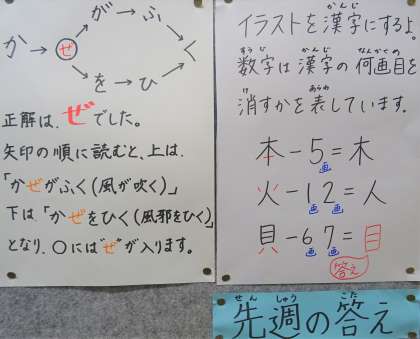 か→ぜ→が→ふ→く
を→ひ
正解は、ぜでした。
矢印の順に読むと、上は、
「かぜがふく(風が吹く)」
下は「かぜをひく(風邪をひく)」
となり、○には"ぜ"が入ります。
イラストを漢字にするよ。
かんじ
数字は漢字の何画目を
すうじ かんじ なんかくめ
消すかを表しています。
け あらわ
本-5=木
画
火-12=人
画 画
貝-67=目
画 画
答え
先週の答え
せん しゅう こた